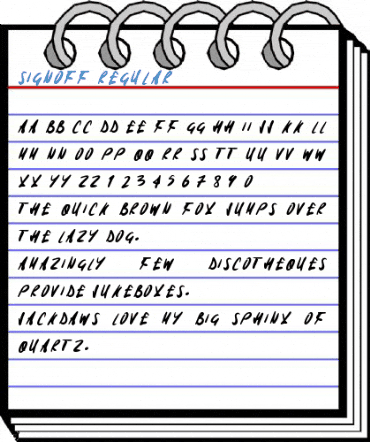 SIGNOFF REGULAR
AA BB CC DD EE FF GG HH II JJ KK LL
MM NN OO PP QQ RR SS TT UU VV WW
XX YY ZZ 1 2 3 4 5 6 7 8 9 0
THE QUICK BROWN FOX JUMPS OVER
THE LAZY DOG.
AMAZINGLY FEW DISCOTHEQUES
PROVIDE JUKEBOXES.
JACKDAWS LOVE MY BIG SPHINX OF
QUARTZ.